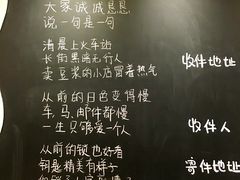 大家诚诚恳恳
说一句是一句
清晨上火车站
长街黑暗无行人
卖豆浆的小店冒着热气
从前的日色变得慢
车、马、邮件都慢
一生只够爱一个人
从前的锁也好看
钥匙精美有样子
收件地址
收件人
寄件地址